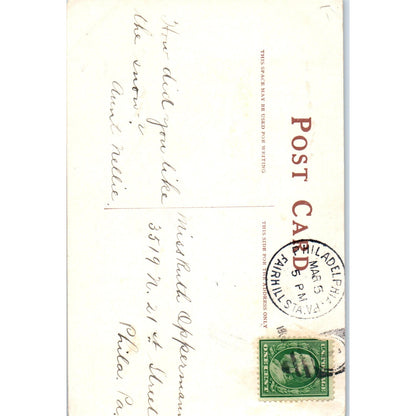 POST CARD
THIS SPACE MAY BE USED FOR WRITING
THIS SIDE FOR THE ADDRESS ONLY
How did you like
the snow?
Aunt Nellie.
Miss Ruth Oppermann
3519 N. 21st Street
Phila. Pa
PHILADELPHIA
MAR 5
5 PM
FAIRHILL STA.
ONE CENT